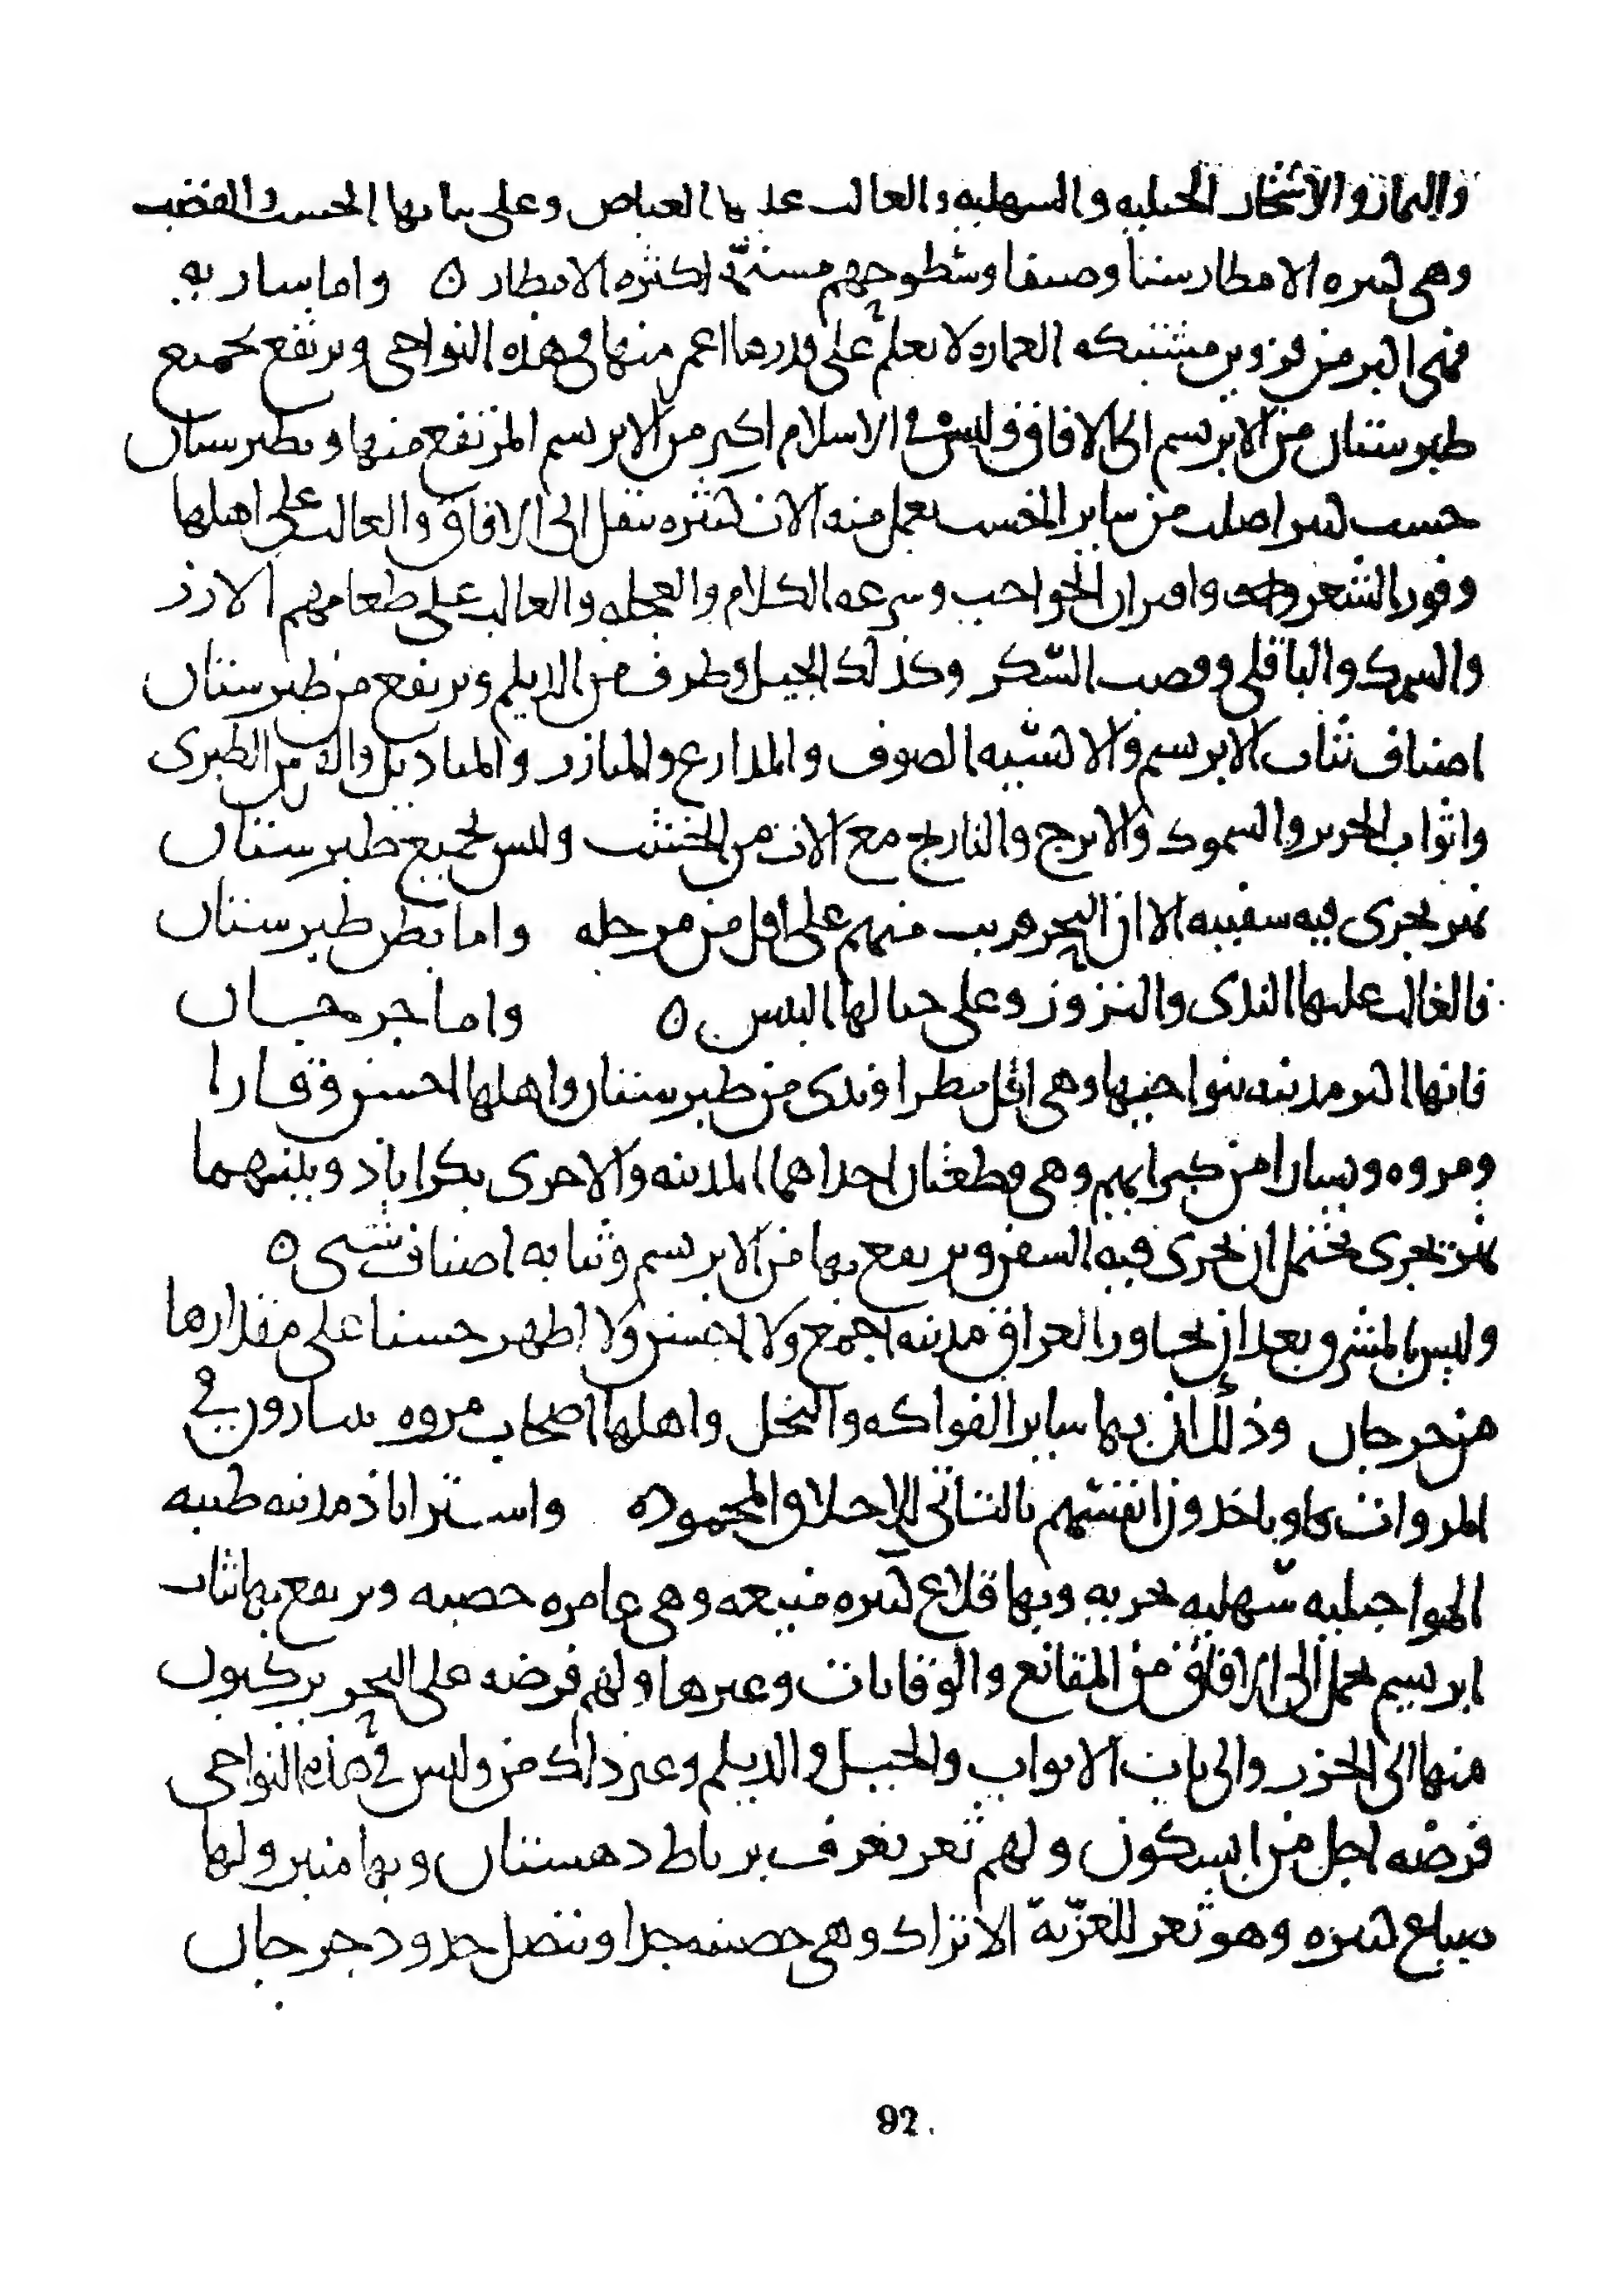 والثمار والاشجار الجبليه والسهليه والغالب عليها الغياض وعلى بنائها الخشب والقصب
وهي كثيره الامطار شتا وصيفا وسطوحهم مسنمة لكثره الامطار ه واما ساريه
فهي اكبر من قزوين مشتبكه العماره لا نعلم على قدرها اعمر منها في هذه النواحي ويرتفع بجميع
طبرستان من الابريسم الى الافاق وليس في الاسلام اكبر من الابريسم المرتفع منها وبطبرستان
خشب كثير اصلب من ساير الخشب يعمل منه الات كثيره تنقل الى الافاق والغالب على اهلها
وفور الشعر واقتران الحواجب وسرعه الكلام والعجله والغالب على طعامهم الارز
والسمك والباقلى وقصب السكر وكذلك الجيل وطرف من الديلم ويرتفع من طبرستان
اصناف ثياب الابريسم والاكسيه الصوف والمدارع والميازر والمناديل الطبرى
واثواب الحرير والسموك والاترج والنارنج مع الات من الخشب وليس لجميع طبرستان
نهر تجرى فيه سفينه الا ان البحر قريب منهم على اقل من مرحله واما بطن طبرستان
فالغالب عليها الندى والنزوز وعلى جبالها اليبس ه واما جرجان
فانها اكبر مدينه بنواحيها وهي اقل مطرا وندى من طبرستان واهلها احسن وقارا
ومروه ويسارا من كبرايهم وهي قطعتان احداهما المدينه والاخرى بكراباذ وبينهما
نهر يجرى يحتمل ان تجرى فيه السفن ويرتفع بها من الابريسم وثيابه اصناف شتى ه
وليس بالمشرق بعد ان تجاوز العراق مدينه اجمع ولا احسن ولا اظهر حسنا على مقدارها
من جرجان وذلك ان بها ساير الفواكه والنخل واهلها اصحاب مروه يتبارون في
المروات وياخذون انفسهم بالتاتى للاخلاق المحموده واستراباذ مدينه طيبه
الهوا جبليه سهليه بحريه وبها قلاع كثيره منيعه وهي عامره خصبه ويرتفع بها ثياب
ابريسم تحمل الى الافاق من المقانع والوقايات وغيرها ولهم فرضه على البحر يركبون
منها الى الخزر والى باب الابواب والجبل والديلم وغير ذلك من وليس في هذه النواحي
فرضه اجل من ابسكون ولهم ثغر يعرف برباط دهستان وبها منبر ولها
ضياع كثيره وهو ثغر للغزية الاتراك وهي حصينه جدا وتتصل حدود جرجان
92.